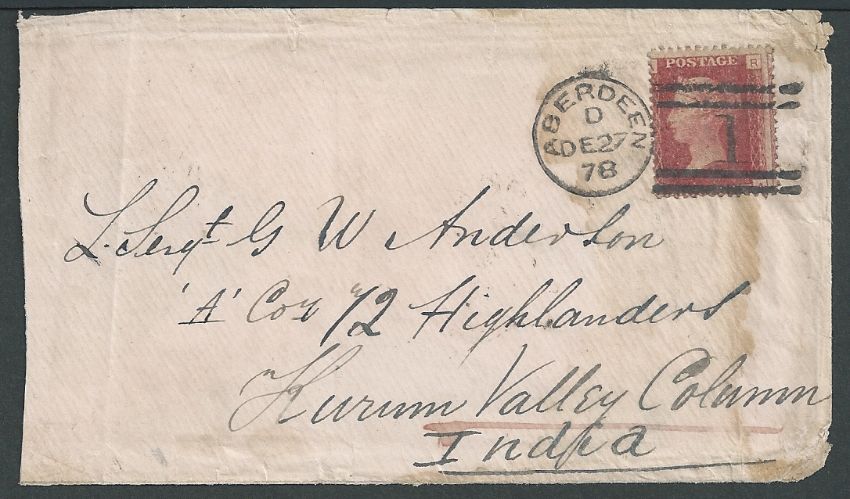 POSTAGE
R
ABERDEEN
D
DE27
78
1
L. Sergt G W Anderson
'A' Coy 72 Highlanders
Kurum Valley Column
India